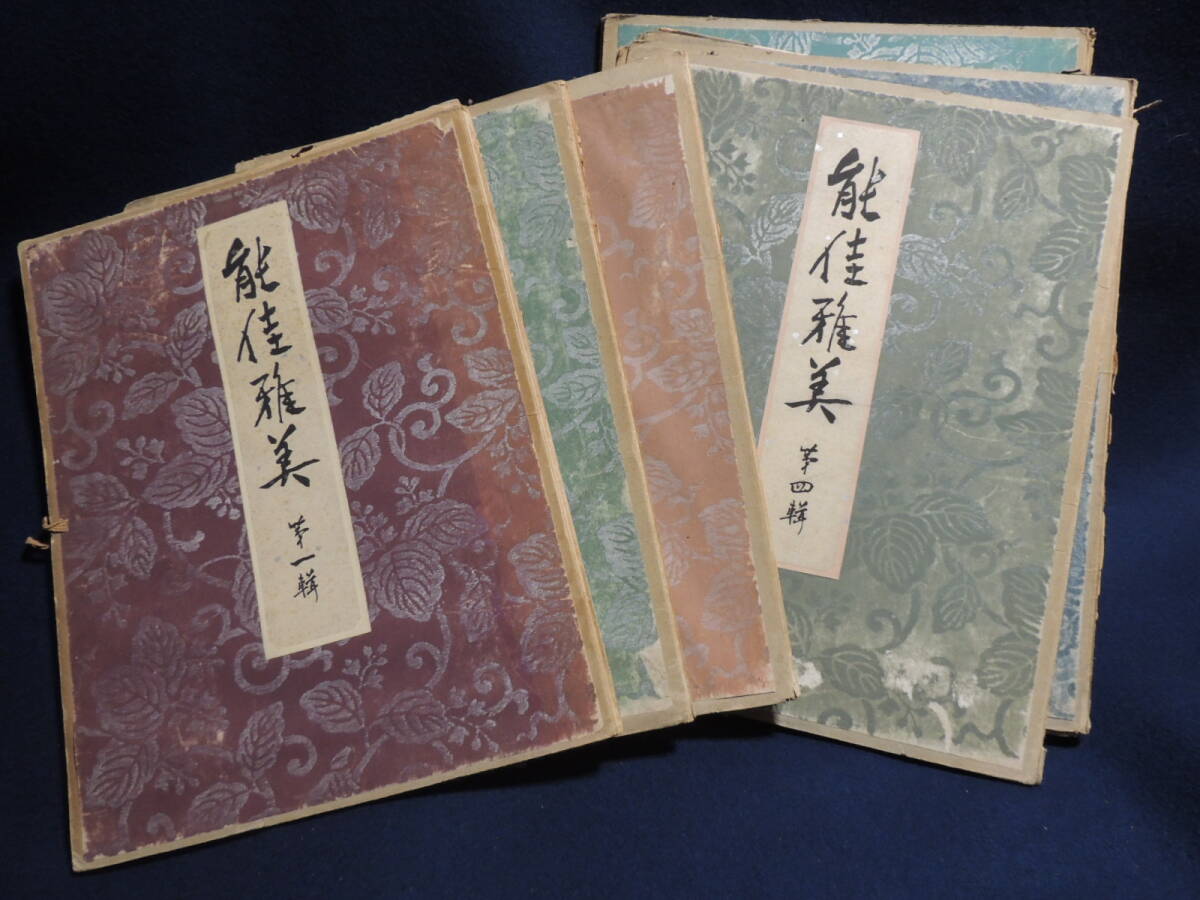 能佳雅美
第一輯
能佳雅美
第四輯